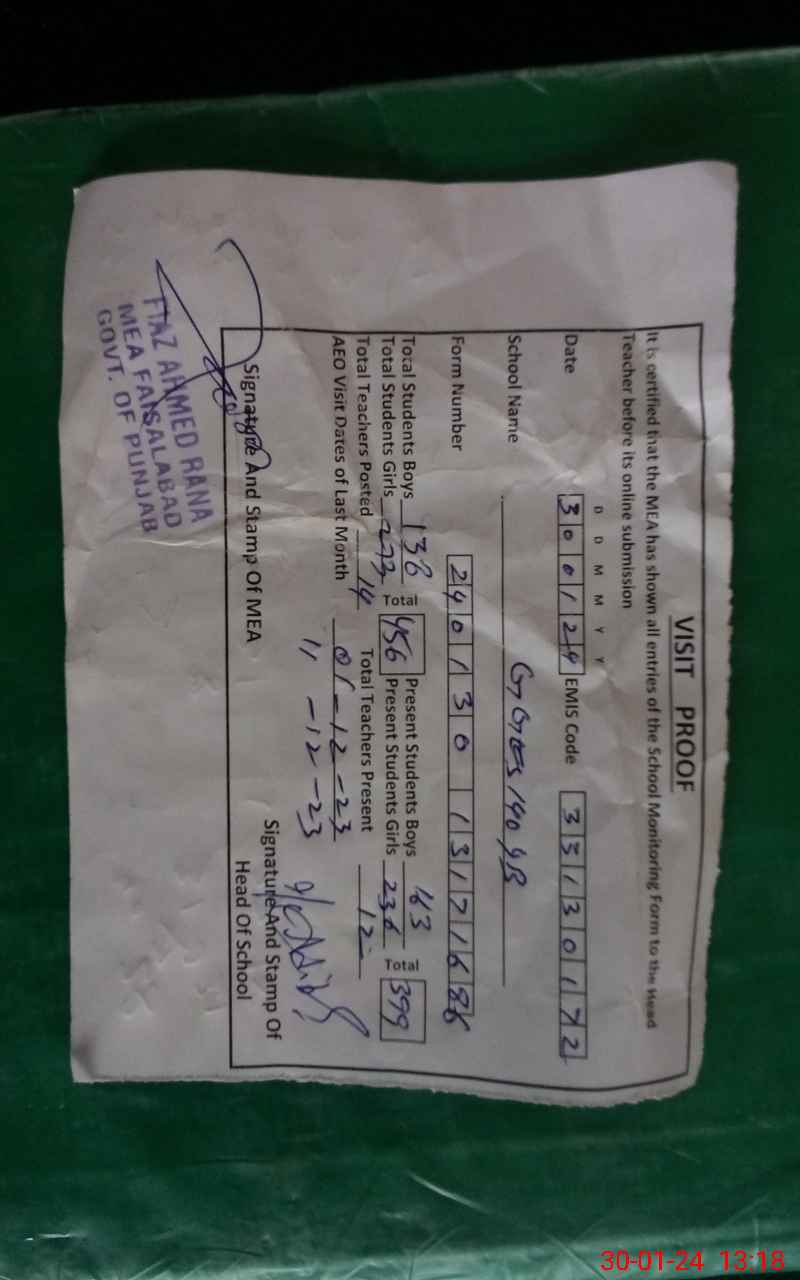 VISIT PROOF
It is certified that the MEA has shown all entries of the School Monitoring Form to the Head
Teacher before its online submission
D D M M Y Y
Date 300124 EMIS Code 33130172
School Name GGES 190 GB
Form Number 240130 1317168
Total Students Boys Total Present Students Boys 163 Total
Total Students Girls 273 456 Present Students Girls 236 399
Total Teachers Posted 14 Total Teachers Present 12
AEO Visit Dates of Last Month 01-12-23
11-12-23
Signature And Stamp Of MEA
Signature And Stamp Of
Head Of School
AHMED RANA
MEA FAISALABAD
GOVT. OF PUNJAB
30-01-24 13:18